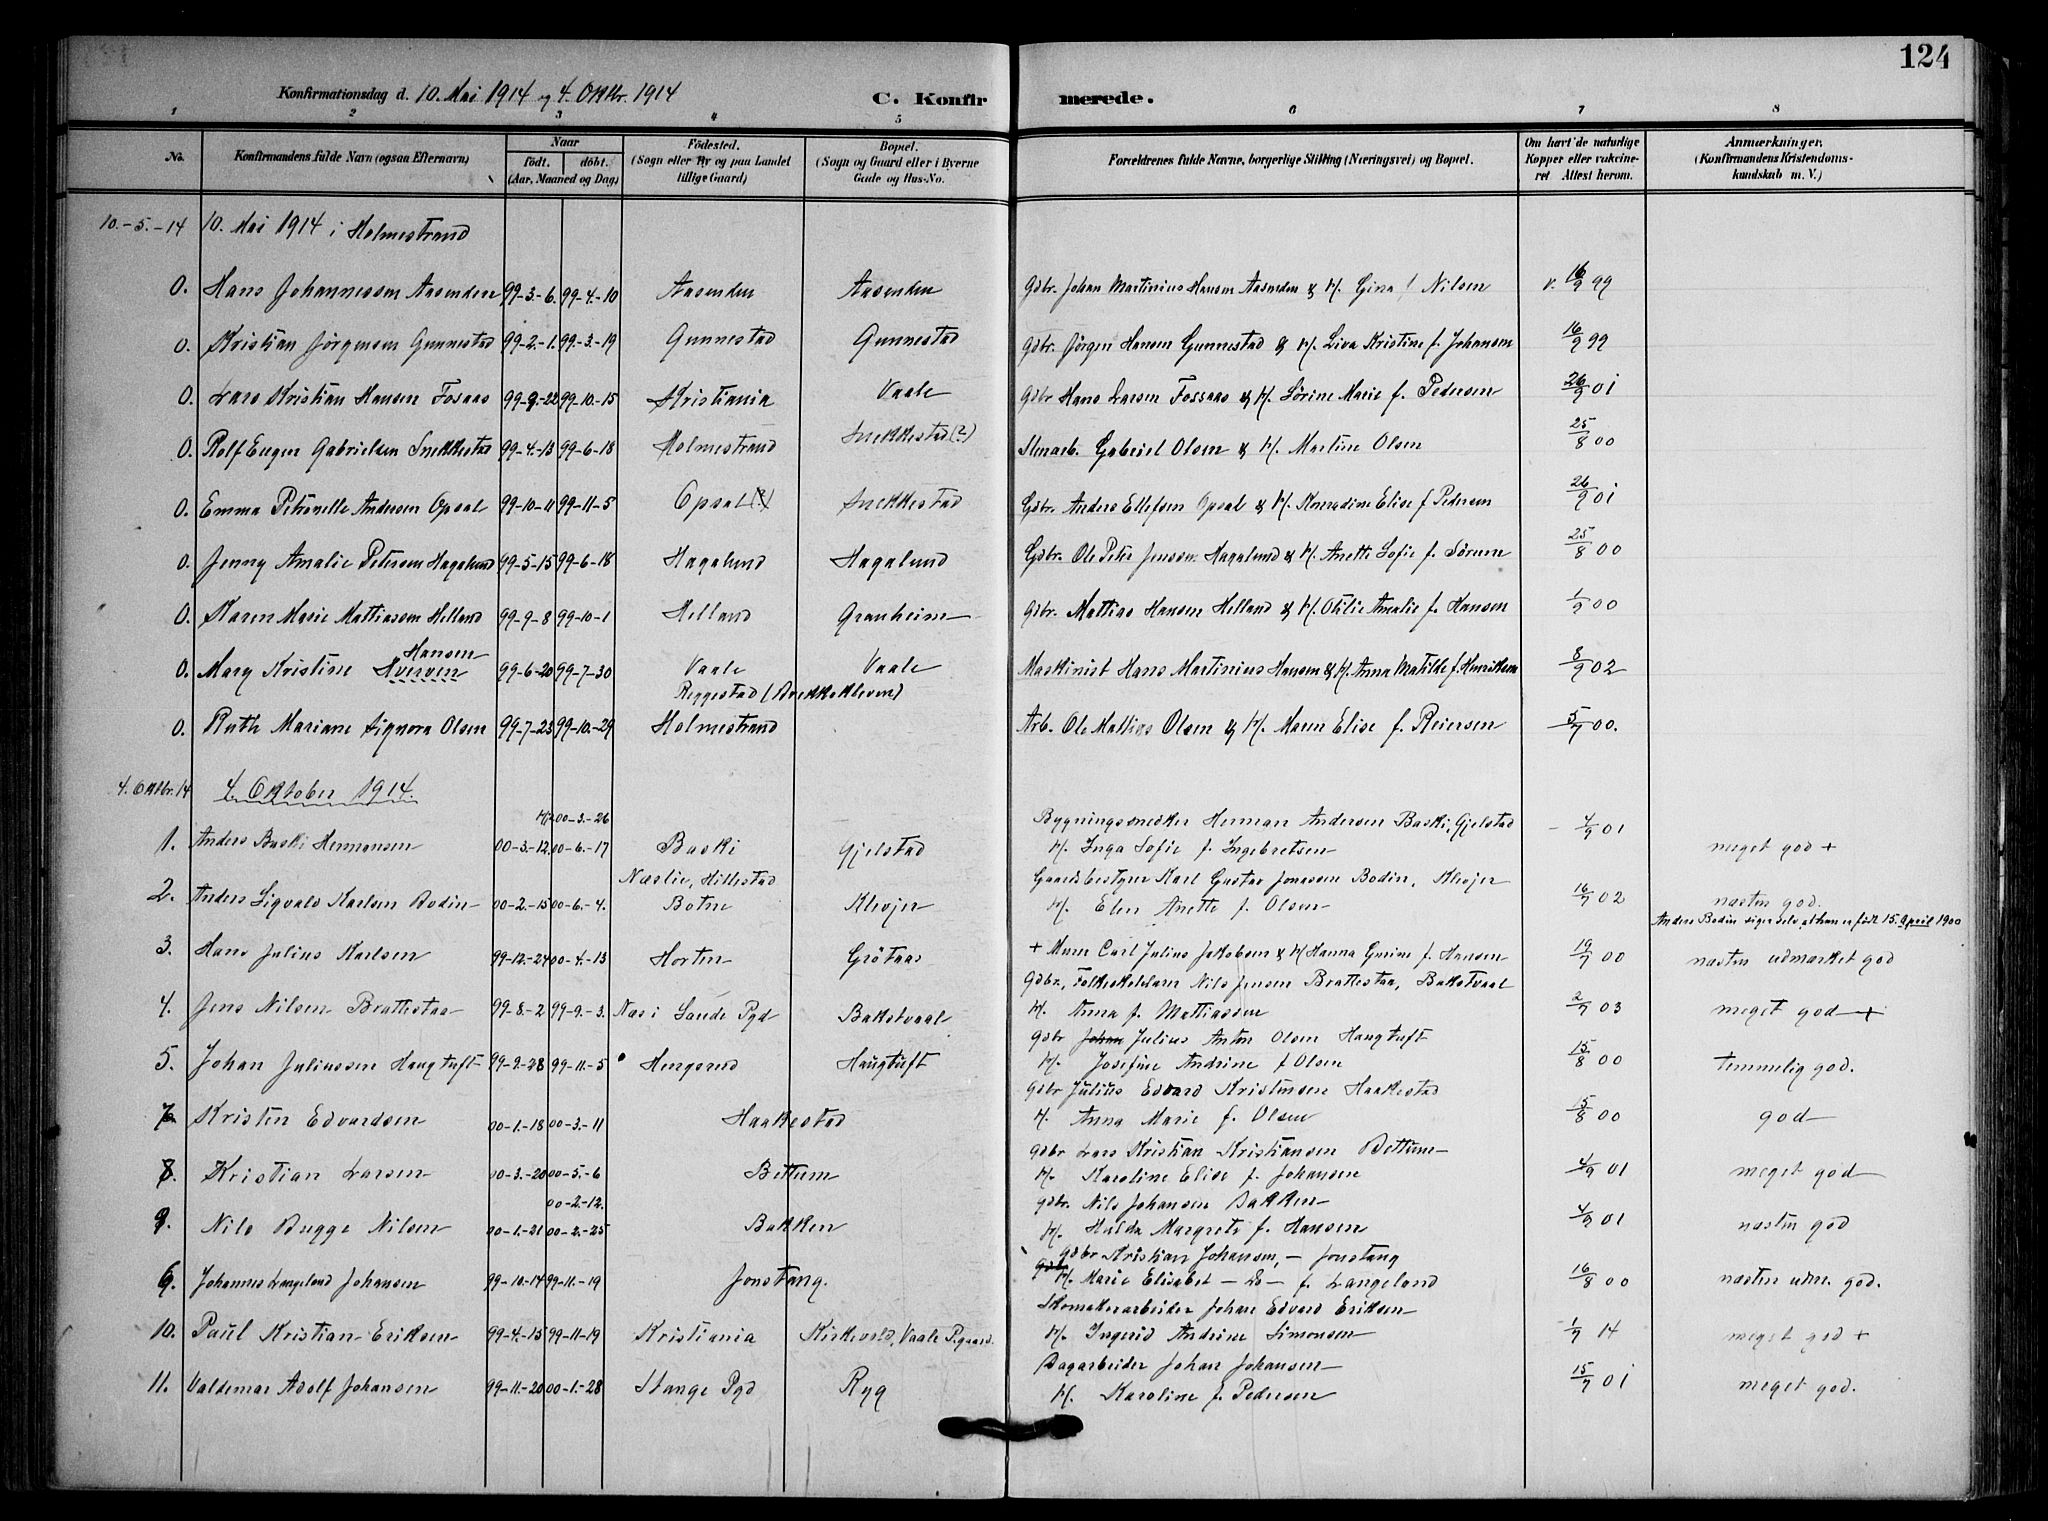 124
Konfirmationsdag d. 10. Mai 1914 og 4. Oktbr. 1914 C. Konfirmerede.
1 2 3 4 5 6 7 8
No. Konfirmandens fulde Navn (ogsaa Efternavn) Naar født. døbt. (Aar, Maaned og Dag) Födested. (Sogn eller By og paa Landet tillige Gaard) Bopæl. (Sogn og Gaard eller i Byerne Gade og Hus-No. Forældrenes fulde Navne, borgerlige Stilling (Næringsvei) og Bopæl. Om havt de naturlige Kopper eller vaccineret Attest herom. Anmærkninger. (Konfirmandens Kristendomskundskab m. V.)
10.-5.-14 10. Mai 1914 i Holmestrand
0. Hans Johannessen Aasenden 99-3-6. 99-4-10 Aasenden Aasenden Gdbr. Johan Martinius Hansen Aasenden & H. Gina f Nilsen v. 16/9 99
0. Kristian Jørgensen Gunnestad 99-2-1. 99-3-19 Gunnestad Gunnestad Gdbr. Jørgen Hansen Gunnestad & H. Liva Kristine f. Johansen 16/9 99
0. Lars Kristian Hansen Fosaas 99-9-22 99-10-15 Kristiania Vaale Gdbr Hans Larsen Fossaas & H. Sörine Marie f. Pedersen 26/9 01
0. Rolf Eugen Gabrielsen Snekkestad 99-4-13 99-6-18 Holmestrand Snekkestad (?) Stenarb. Gabriel Olsen & H. Martine Olsen 25/8 00
0. Emma Petronelle Andersen Opsal 99-10-11 99-11-5 Opsal (?) Snekkestad Gdbr. Anders Ellefsen Opsal & H. Konradine Elise f Pedersen 26/9 01
0. Jenny Amalie Petersen Hagalund 99-5-15 99-6-18 Hagalund Hagalund Gdbr. Ole Peter Jensen Hagalund & H. Anette Sofie f. Sörum 25/8 00
0. Karen Marie Mattiassen Helland 99-9-8 99-10-1 Helland Granheim Gdbr. Mattias Hansen Helland & H. Otilie Amalie f. Hansen 1/9 00
Hansen
0. Mary Kristine Hverven 99-6-20 99-7-30 Vaale Vaale Maskinist Hans Martinius Hansen & H. Anna Matilde f. Henriksen 8/9 02
Reggestad (Brekkekleven)
0. Ruth Mariane Signora Olsen 99-7-23 99-10-29 Holmestrand Arb. Ole Mathias Olsen & H. Maren Elise f. Reiersen 5/7 00.
4. Oktbr. 14 4. Oktober 1914.
00-3-26 Bygningssnedker Herman Andersen Baski, Gjelstad
1. Anders Baski Hermansen 00-3-12 00-6-17 Baski Gjelstad H. Inga Sofie f. Ingebretsen 4/9 01 meget god +
Næslie, Hillestad Gaardsbestyrer Karl Gustav Jonassen Bodin, Klevjer
2. Anders Sigvald Karlsen Bodin 00-2-15 00-6-4. Botne Klevjer H. Elen Anette f. Olsen 16/7 02 næsten god.
Anders Bodin siger selv at han er född 15. April 1900
3. Hans Julius Karlsen 99-12-24 00-4-13 Horten Grötaas + Murer Carl Julius Jakobsen & H Hanna Gurine f. Hansen 19/7 00 næsten udmærket god
Gdbr., Folkeskolelærer Nils Jensen Brattestaa, Bakstvaal
4. Jens Nilsen Brattestaa 99-8-2 99-9-3. Næs i Sande Pgd Bakstvaal H. Anna f. Mattiassen 2/7 03 meget god +
Gdbr Johan Julius Anton Olsen Haugtuft
5. Johan Juliussen Haugtuft 99-9-28 99-11-5 Hengsrud Haugtuft H. Josefine Andrine f Olsen 15/8 00 temmelig god.
Gdbr Julius Edvard Kristensen Haakestad
7. Kristen Edvardsen 00-1-18 00-3-11 Haakestad H. Anna Marie f. Olsen 5/8 00 god
Gdbr Lars Kristian Kristiansen Bettum
8. Kristian Larsen 00-3-20 00-5-6 Bettum H. Karoline Elise f. Johansen 4/9 01 meget god
00-2-12. Gdbr. Nils Johansen Bakken
9. Nils Bugge Nilsen 00-1-21 00-2-25 Bakken H. Hulda Margrete f. Hansen 4/9 01 næsten god
Gdbr Kristian Johansen, Jonstang
6. Johannes Langeland Johansen 99-10-14 99-11-19 Jonstang. H. Marie Elisabet — Do — f. Langeland 16/8 00 næsten udm. god.
Skomakerarbeider Johan Edvard Eriksen
10. Paul Kristian Eriksen 99-4-15 99-11-19 Kristiania Kirkevold, Vaale P.gaard. H. Ingerid Andrine Simonsen 1/7 14 meget god +
Dagarbeider Johan Johansen
11. Valdemar Adolf Johansen 99-11-20 00-1-28 Stange Pgd Ryg H. Karoline f. Pedersen 15/7 01 meget god.